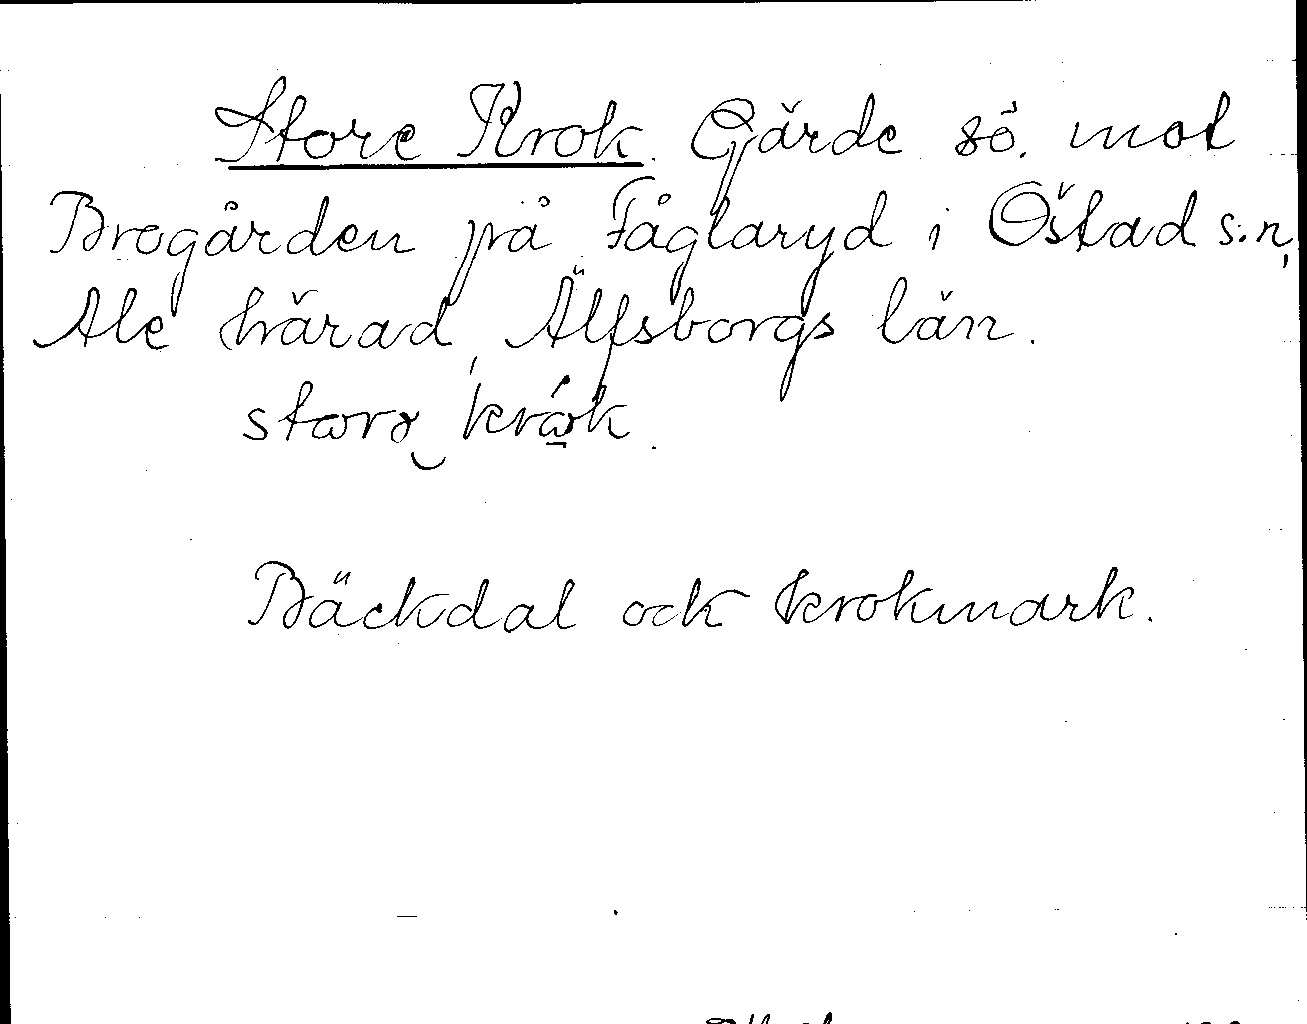 Store Krok. Gärde sö. mot
Brogården på Fåglaryd i Östad s.n,
Ale härad, Älfsborgs län.
Bäckdal och krokmark.